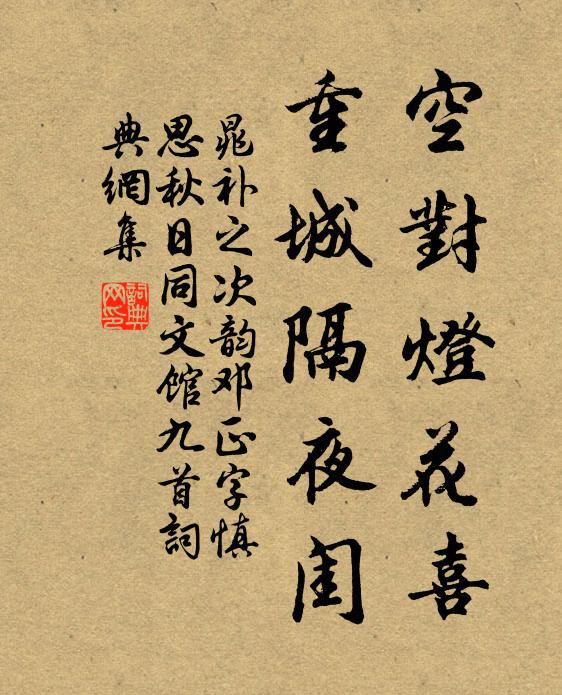 空對燈花喜
重城隔夜閨
晁补之次韵邓正字慎
思秋日同文馆九首詞
典網集
詞典
网印